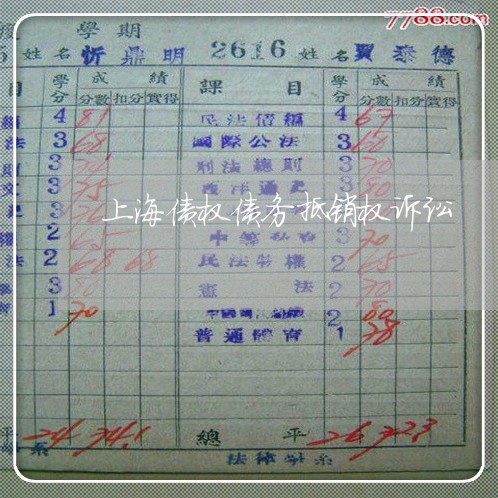 7788.com
學期
5 姓名 忻鼎明 2616 姓名 賈泰德
目 學分 成績 課目 學分 成績
分數 扣分 實得 分數 扣分 實得
4 81 民法債編 4 67
法 3 68 國際公法 3 60
3 刑法總則 3 70
3 75 3 80
上海债权债务抵销权诉讼
2 65 3 70
法 2 68 68 民法物權 2 65
3 80 憲法 2 70
1 70 2 80
普通體育 1 78
平 24 74.1 總平 26 72.3
系 法律學系